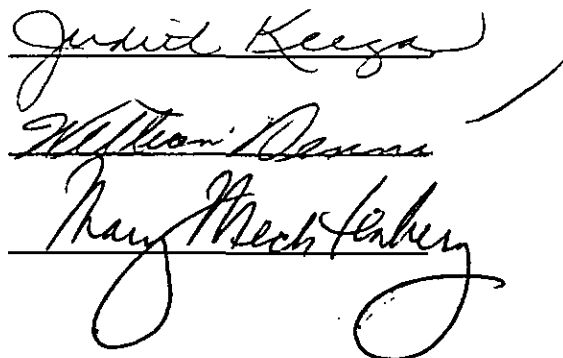 Judith Keegan
William
Mary Mechtenberg